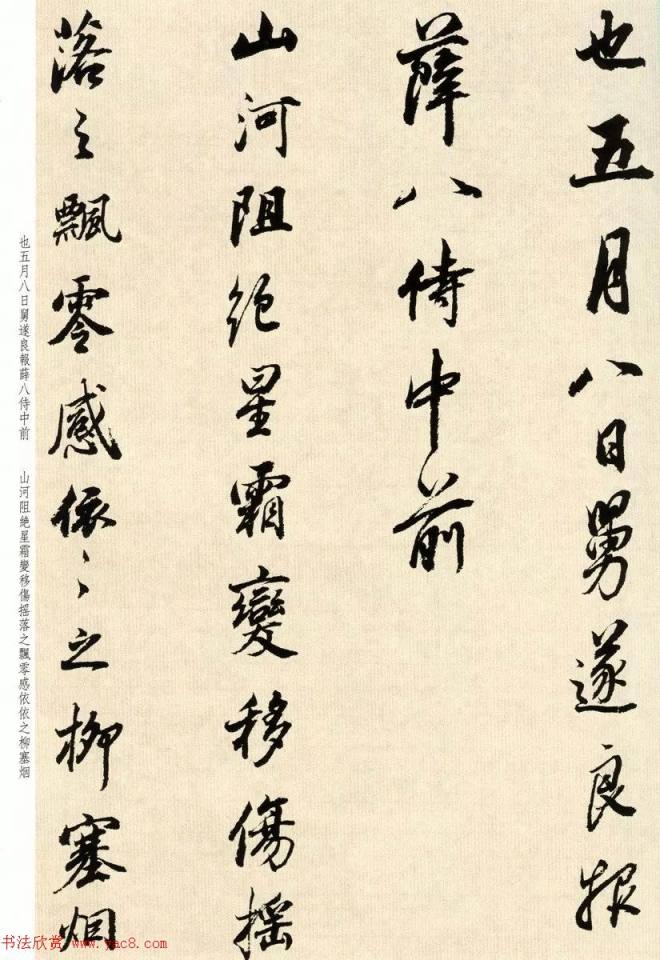 也五月八日舅遂良報
薛八侍中前
山河阻絕星霜變移傷搖
落之飄零感依〻之柳塞烟
也五月八日舅遂良報薛八侍中前　山河阻絶星霜變移傷摇落之飄零感依依之柳塞烟
书法欣赏 www.yac8.com